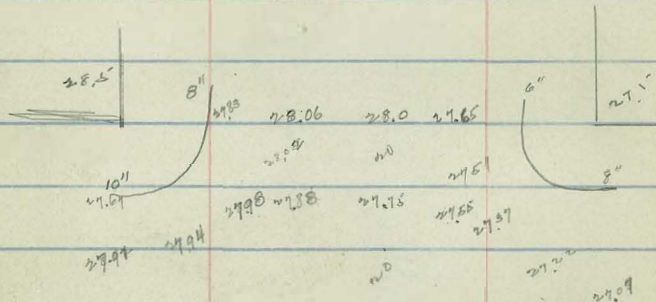 28.5 8" 6" 27.1
27.83 28.06 28.0 27.65
20
27.51
10" 8"
27.67 2798 27.88 27.75 27.55
27.37
27.97 27.94 20 27.22
27.09